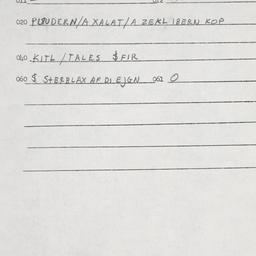 020 PUDERN/A XALAT/A ZEKL IBERN KOP
040 KITL/TALES $FIR
060 $ STERBLAX AF DI EJGN 062 0